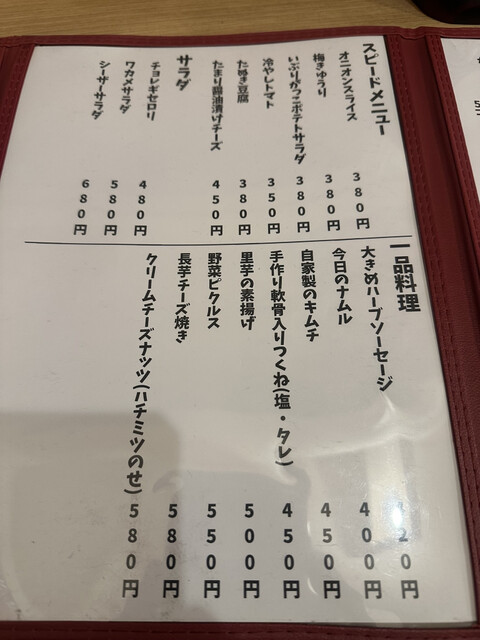 スピードメニュー
オニオンスライス 380円
梅きゅうり 380円
いぶりがっこポテトサラダ 380円
冷やしトマト 350円
たぬき豆腐 380円
たまり醤油漬けチーズ 450円
サラダ
チョレギセロリ 480円
ワカメサラダ 580円
シーザーサラダ 680円
一品料理
大きめハーブソーセージ
今日のナムル 400円
自家製のキムチ 450円
手作り軟骨入りつくね(塩・タレ) 450円
里芋の素揚げ 500円
野菜ピクルス 550円
長芋チーズ焼き 580円
クリームチーズナッツ(ハチミツのせ) 580円